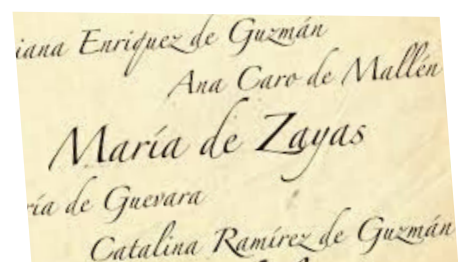 iana Enriquez de Guzmán
Ana Caro de Mallén
María de Zayas
ría de Guevara
Catalina Ramírez de Guzmán